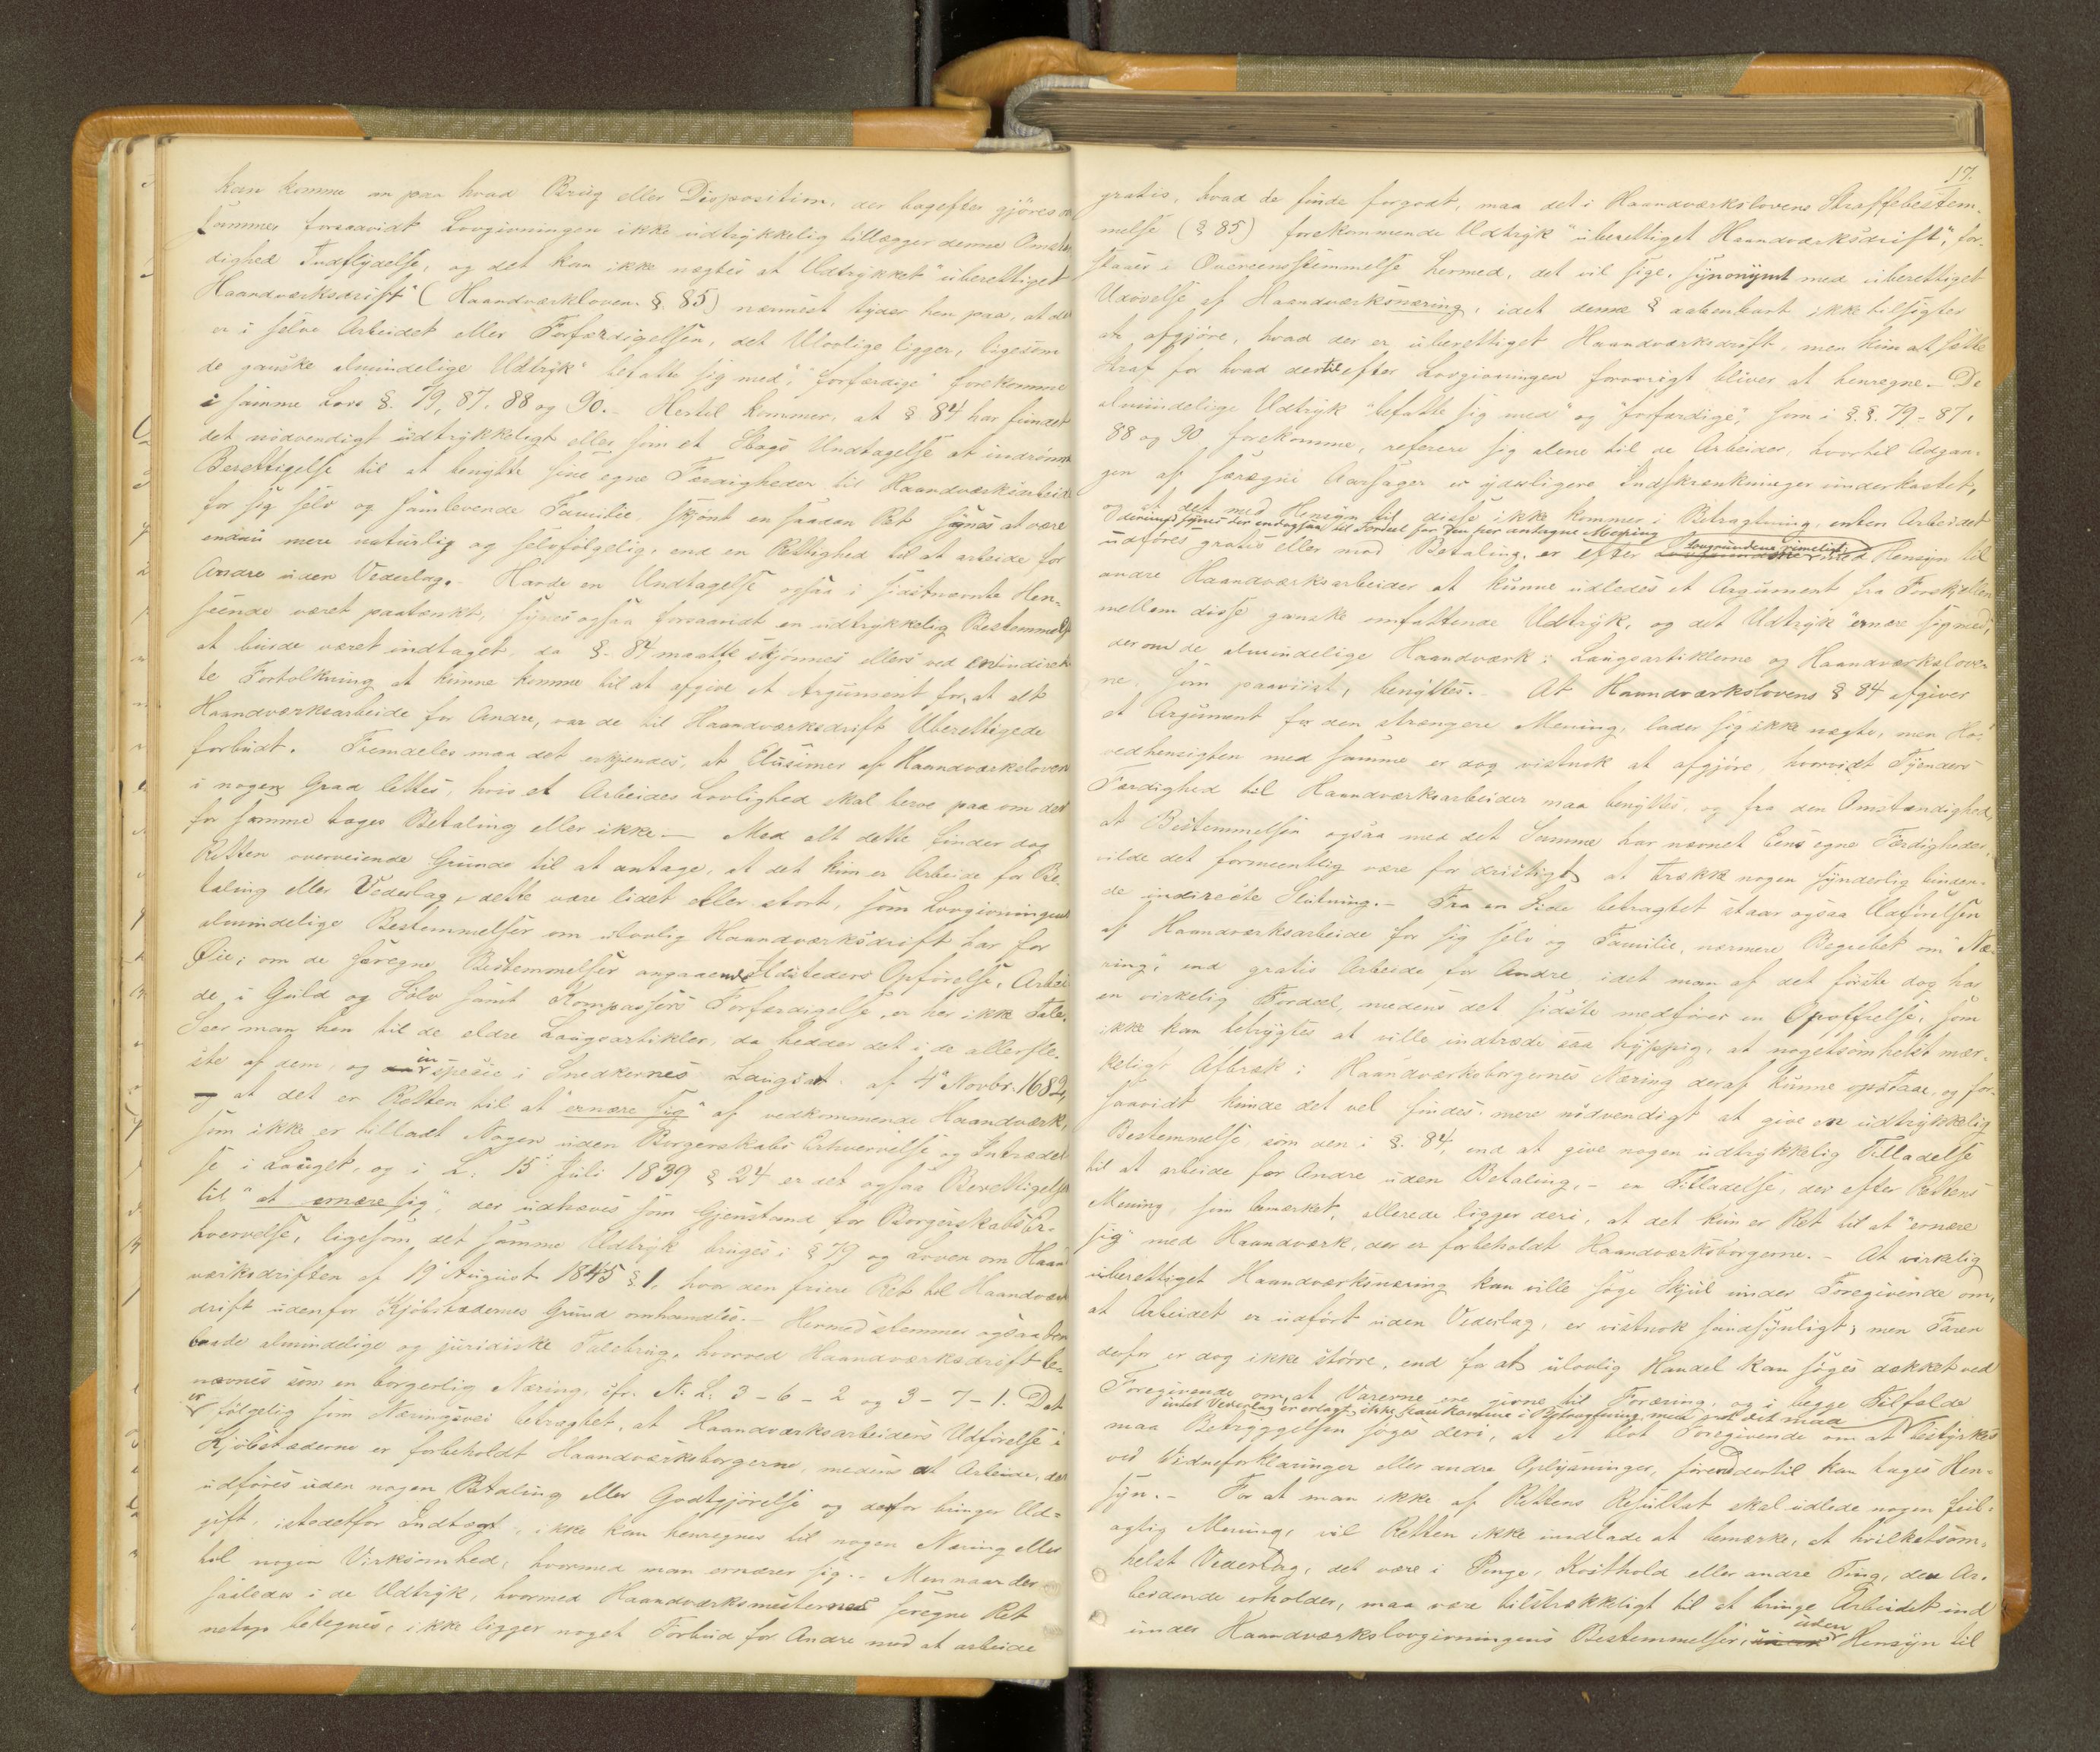 kan komme an paa hvad Brug eller Disposition, der bagefter gjöres af
samme forsaavidt Lovgivningen ikke udtrykkelig tillægger denne Omstæn
dighed Indflydelse, og det kan ikke nægtes at Udtrykket "uberettiget
Haandværksdrift" (Haandværkloven §. 85) nærmest tyder hen paa, at det
er i selve Arbeidet eller Forfærdigelsen, det Ulovlige ligger, ligesom
de ganske almindelige Udtryk "befatte sig med", "forfærdige" forekomme
i samme Lovs §. 79, 87, 88 og 90.- Hertil kommer, at § 84 har fundet
det nödvendigt udtrykkeligt eller som et Slags Undtagelse at indrömme
Berettigelse til at benytte sine egne Færdigheder til Haandværksarbeide
for sig selv og samlevende Familie, skjönt en saadan Ret synes at være
endnu mere naturlig og selvfölgelig, end en Rettighed til at arbeide for
Andre uden Vederlag. Havde en Undtagelse ogsaa i sidstnævnte Hen-
seende været paatænkt, synes ogsaa forsaavidt en udtrykkelig Bestemmelse
at burde været indtaget, da §. 84 maatte skjönnes ellers ved en indirek
te Fortolkning at kunne komme til at afgive et Argument for, at alt
Haandværksarbeide for Andre, var de til Haandværksdrift Uberettigede
forbudt. Fremdeles maa det erkjendes, at Elusioner af Haandværksloven
i nogen Grad lettes, hvis et Arbeides Lovlighed skal beroe paa om der
for samme tages Betaling eller ikke.- Med alt dette finder dog
Retten overveiende Grunde til at antage, at det kun er Arbeide for Be-
taling eller Vederlag, dette være lidet eller stort, som Lovgivningens
almindelige Bestemmelser om ulovlig Haandværksdrift har for
Öie; om de særegne Bestemmelser angaaende Ildsteders Opförelse, Arbei
de i Guld og Sölv samt Kompassers Forfærdigelse, er her ikke Tale.
Seer man hen til de ældre Laugsartikler, da hedder det i de allerfle-
ste af dem, og in specie i Snedkernes Laugsart. af 4 Novbr. 1682,
at det er Retten til at "ernære sig" af vedkommende Haandværk,
som ikke er tilladt Nogen uden Borgerskabs Erhvervelse og Indtrædel
se i Lauget, og i L. 15 Juli 1839 § 24 er det ogsaa Berettigelsen
til "at ernære sig", der udhæves som Gjenstand for Borgerskabs Er-
hvervelse, ligesom det samme Udtryk bruges i § 79 og Loven om Haand
værksdriften af 19 August 1845 § 1, hvor den friere Ret til Haandværks
drift udenfor Kjöbstædernes Grund omhandles.- Hermed stemmer ogsaa den
baade almindelige og juridiske Talebrug, hvorved Haandværksdrift be-
nævnes som en borgerlig Næring, cfr. N. L. 3-6-2 og 3-7-1. Det
er fölgelig som Næringsvei betragtet, at Haandværksarbeiders Udförelse i
Kjöbstæderne er forbeholdt Haandværksborgerne, medens at Arbeide, der
udföres uden nogen Betaling eller Godtgjörelse og derfor bringer Ud-
gift, istedetfor Indtægt, ikke kan henregnes til nogen Næring eller
til nogen Virksomhed, hvormed man ernærer sig.- Men naar der
saaledes i de Udtryk, hvormed Haandværksmesternes særegne Ret
netop betegnes, ikke ligger noget Forbud for Andre mod at arbeide
17.
gratis, hvad de finde forgodt, maa det i Haandværkslovens Straffebestem-
melse (§ 85) forekommende Udtryk "uberettiget Haandværksdrift", for-
staaes i Overeensstemmelse hermed, det vil sige, synonymt med uberettiget
Udövelse af Haandværksnæring, idet denne § aabenbart ikke tilsigter
at afgjöre, hvad der er uberettiget Haandværksdrift, men kun at sætte
Straf for hvad dertil efter Lovgivningen forövrigt bliver at henregne.- De
almindelige Udtryk "befatte sig med" og "forfærdige", som i §.§. 79-87,
88 og 90 forekomme, referere sig alene til de Arbeider, hvortil Adgan-
gen af særegne Aarsager er yderligere Indskrænkninger underkastet,
og at det med Hensyn til disse ikke kommer i Betragtning, enten Arbeidet
derimod synes der endogsaa til Fordeel for den her antagne Mening
udföres gratis eller mod Betaling, er efter Lovgrundene rimeligt; med Hensyn til
andre Haandværksarbeider at kunne udledes et Argument fra Forskjellen
mellem disse ganske omfattende Udtryk, og det Udtryk "ernære sig med",
der om de almindelige Haandværk i Laugsartiklerne og Haandværkslove-
ne, som paaviist, benyttes.- At Haandværkslovens § 84 afgiver
et Argument for den strængere Mening, lader sig ikke nægte, men Ho-
vedhensigten med samme er dog vistnok at afgjöre, hvorvidt Tyenders
Færdighed til Haandværksarbeider maa benyttes, og fra den Omstændighed,
at Bestemmelsen ogsaa med det Samme har nævnet Eens egne Færdigheder,
vilde det formeentlig være for dristigt at trække nogen synderlig binden-
de indirecte Slutning.- Fra en Side betragtet staar ogsaa Udförelsen
af Haandværksarbeide for sig selv og Familie, nærmere Begrebet om "Næ-
ring", end gratis Arbeide for Andre idet man af det förste dog har
en virkelig Fordeel, medens det sidste medförer en Opoffrelse, som
ikke kan betrygtes at ville indtræde saa hyppig, at nogetsomhelst mær-
keligt Afbræk i Haandværksborgernes Næring deraf kunne opstaae, og for-
saavidt kunde det vel findes mere nödvendigt at give en udtrykkelig
Bestemmelse, som den i §. 84, end at give nogen udtrykkelig Tilladelse
til at arbeide for Andre uden Betaling,- en Tilladelse, der efter Rettens
Mening, som bemærket, allerede ligger deri, at det kun er Ret til at "ernære
sig" med Haandværk, der er forbeholdt Haandværksborgerne.- At virkelig
uberettiget Haandværksnæring kan ville söge Skjul under Foregivende om,
at Arbeidet er udfört uden Vederlag, er vistnok sandsynligt; men Faren
derfor er dog ikke större, end for at ulovlig Handel kan söges dækket ved
Foregivende om, at Varerne ere givne til Foræring, og i begge Tilfælde
intet Vederlag er erlagt, ikke kan komme i Betragtning, med det maa
maa Betryggelsen söges deri, at et blot Foregivende om at bestyrkes
ved Vidneforklaringer eller andre Oplysninger, forend dertil kan tages Hen-
syn.- For at man ikke af Rettens Resultat skal udlede nogen feil-
agtig Mening, vil Retten ikke undlade at bemærke, at hvilketsom-
helst Vederlag, det være i Penge, Kosthold eller andre Ting, den Ar-
beidende erholder, maa være tilstrækkeligt til at bringe Arbeidet ind
under Haandværkslovgivningens Bestemmelser, uden Hensyn til